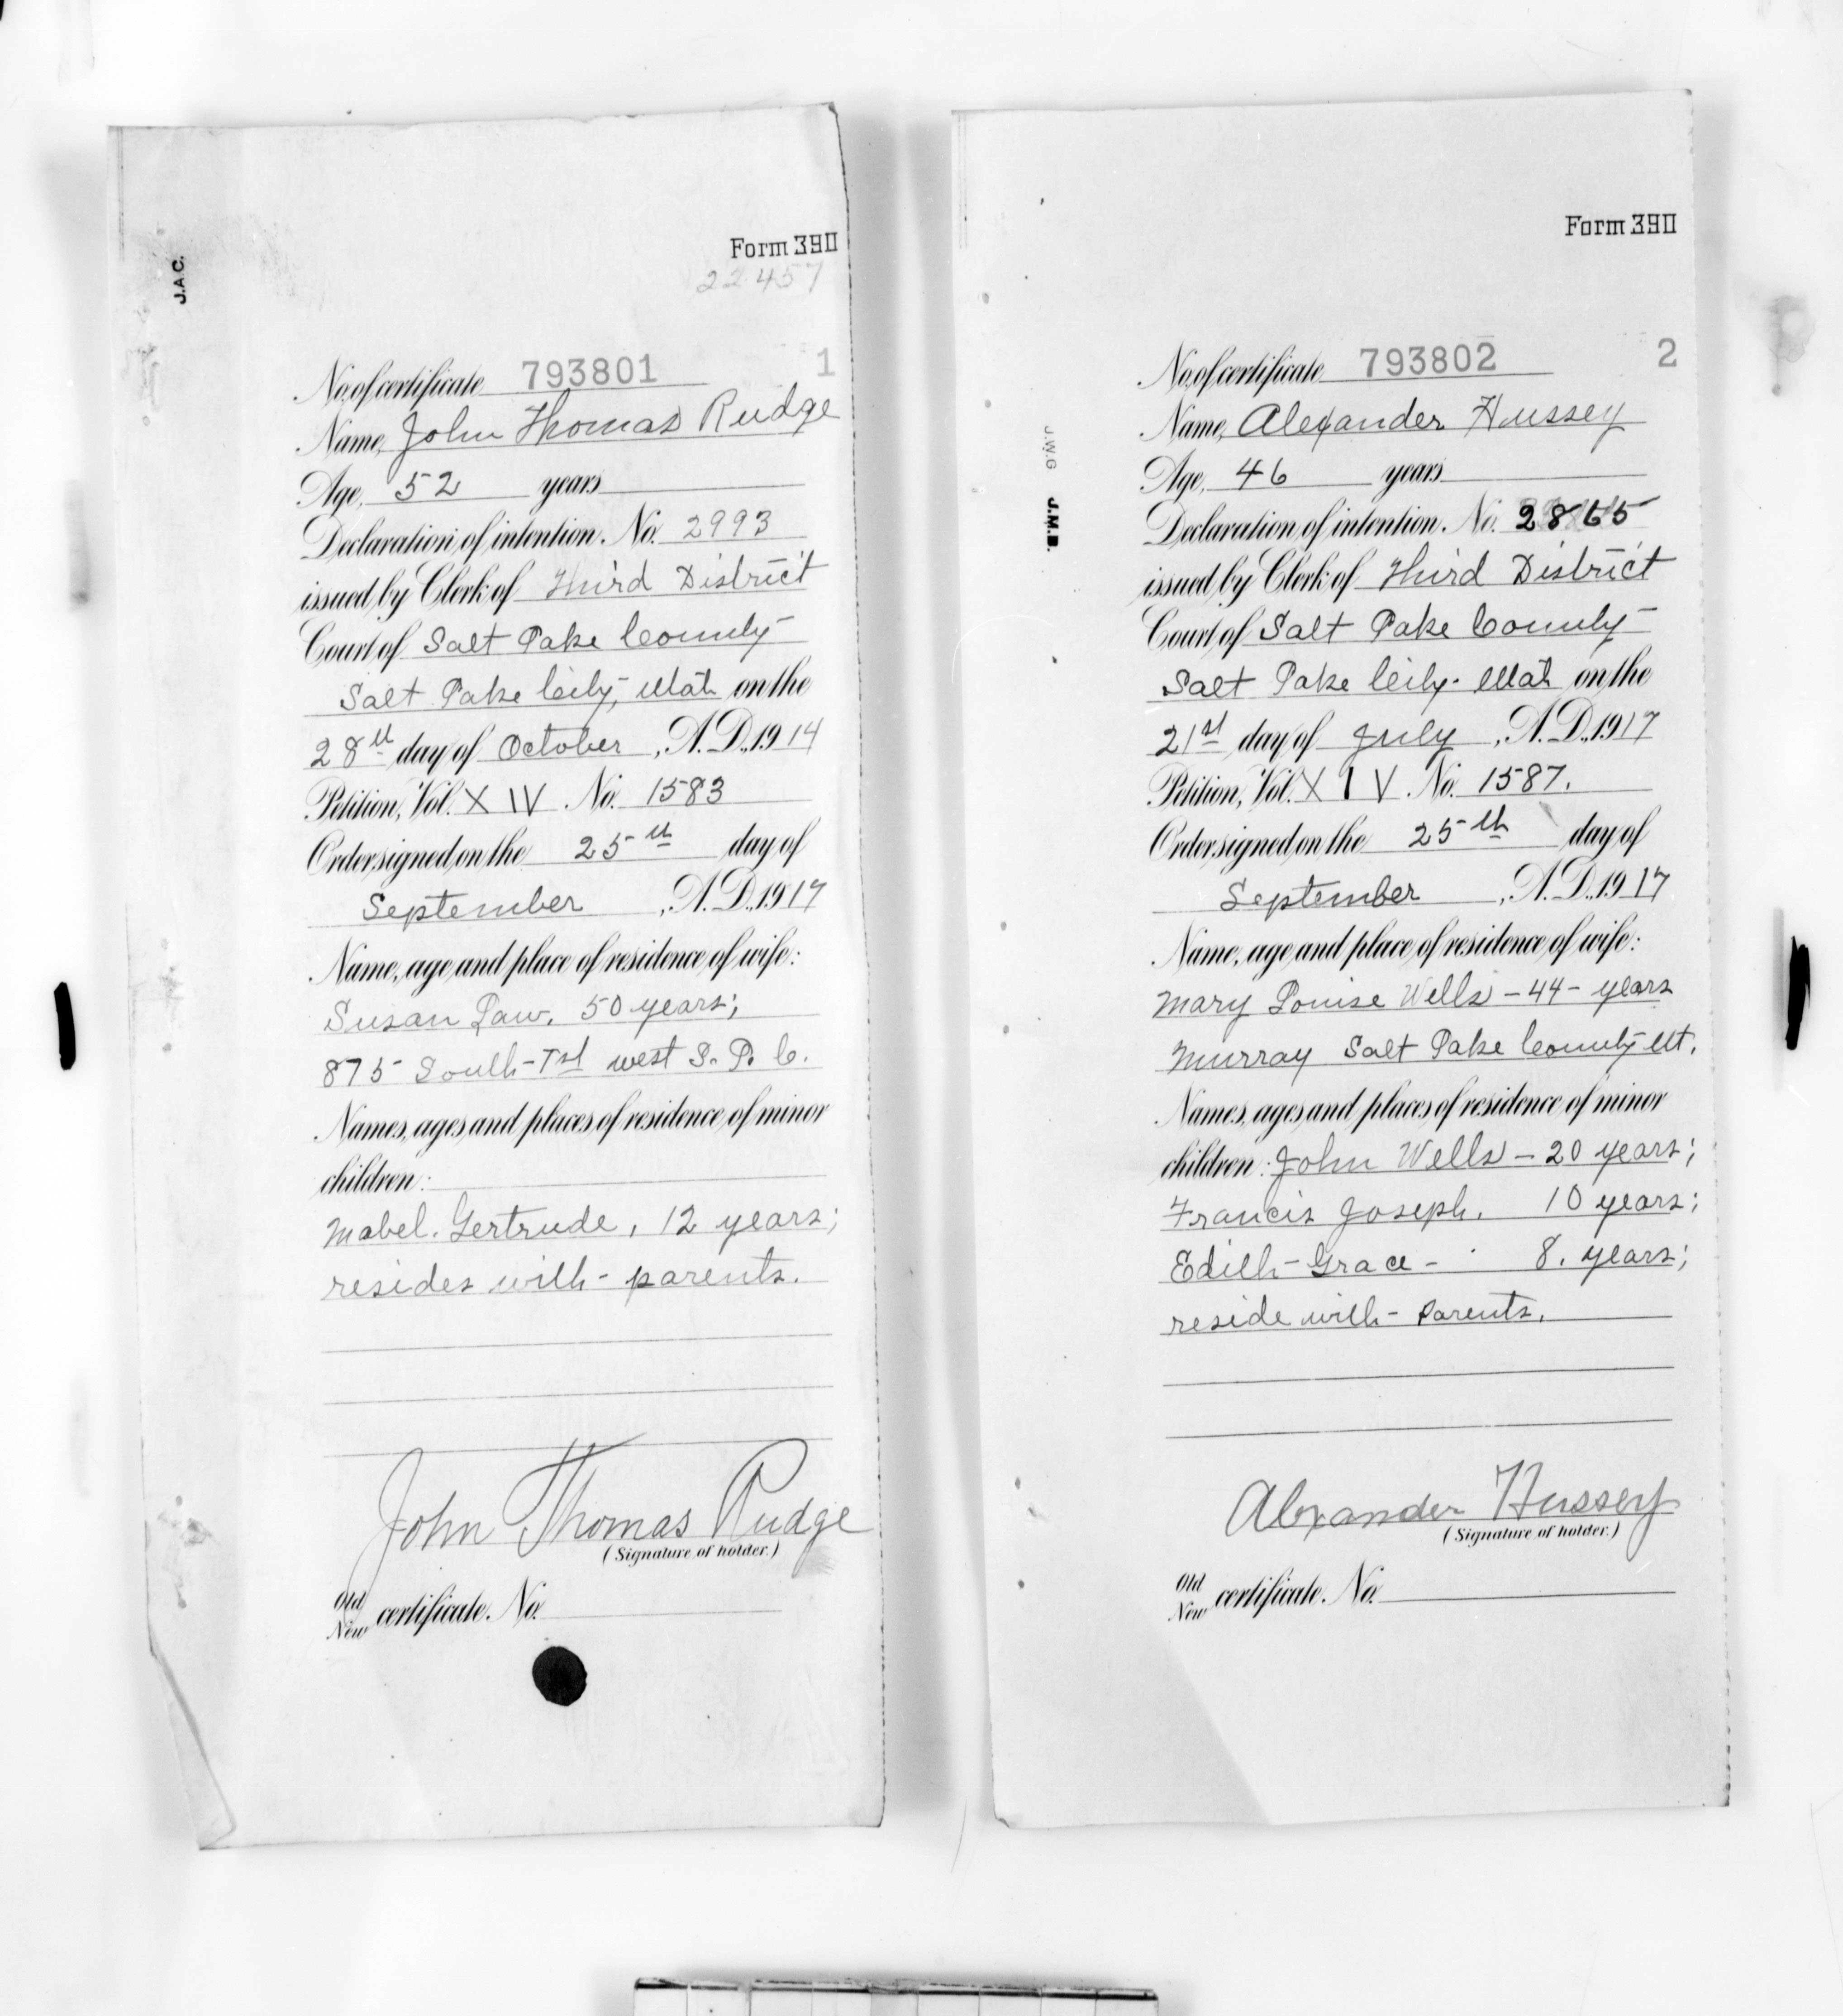 J.A.C.
Form 390
22457
No. of certificate 793801 1
Name, John Thomas Rudge
Age, 52 years
Declaration of intention. No. 2993
issued by Clerk of Third District
Court of Salt Lake County
Salt Lake City, Utah on the
28th day of October, A.D., 1914
Petition, Vol. XIV No. 1583
Order signed on the 25th day of
September, A.D., 1917
Name, age and place of residence of wife:
Susan Law, 50 years;
875 South-1st west S. L. C.
Names, ages and places of residence of minor
children:
Mabel Gertrude, 12 years;
resides with parents.
John Thomas Rudge
(Signature of holder.)
Old
New certificate. No.
Form 390
J.W.G J.M.B.
No. of certificate 793802 2
Name, Alexander Hussey
Age, 46 years
Declaration of intention. No. 2865
issued by Clerk of Third District
Court of Salt Lake County
Salt Lake City. Utah on the
21st day of July, A.D., 1917
Petition, Vol. XIV No. 1587.
Order signed on the 25th day of
September, A.D., 1917
Name, age and place of residence of wife:
Mary Louise Wells - 44 - years
Murray Salt Lake County Ut.
Names, ages and places of residence of minor
children: John Wells - 20 years;
Francis Joseph. 10 years;
Edith Grace - 8. years;
reside with parents.
Alexander Hussey
(Signature of holder.)
Old
New certificate. No.